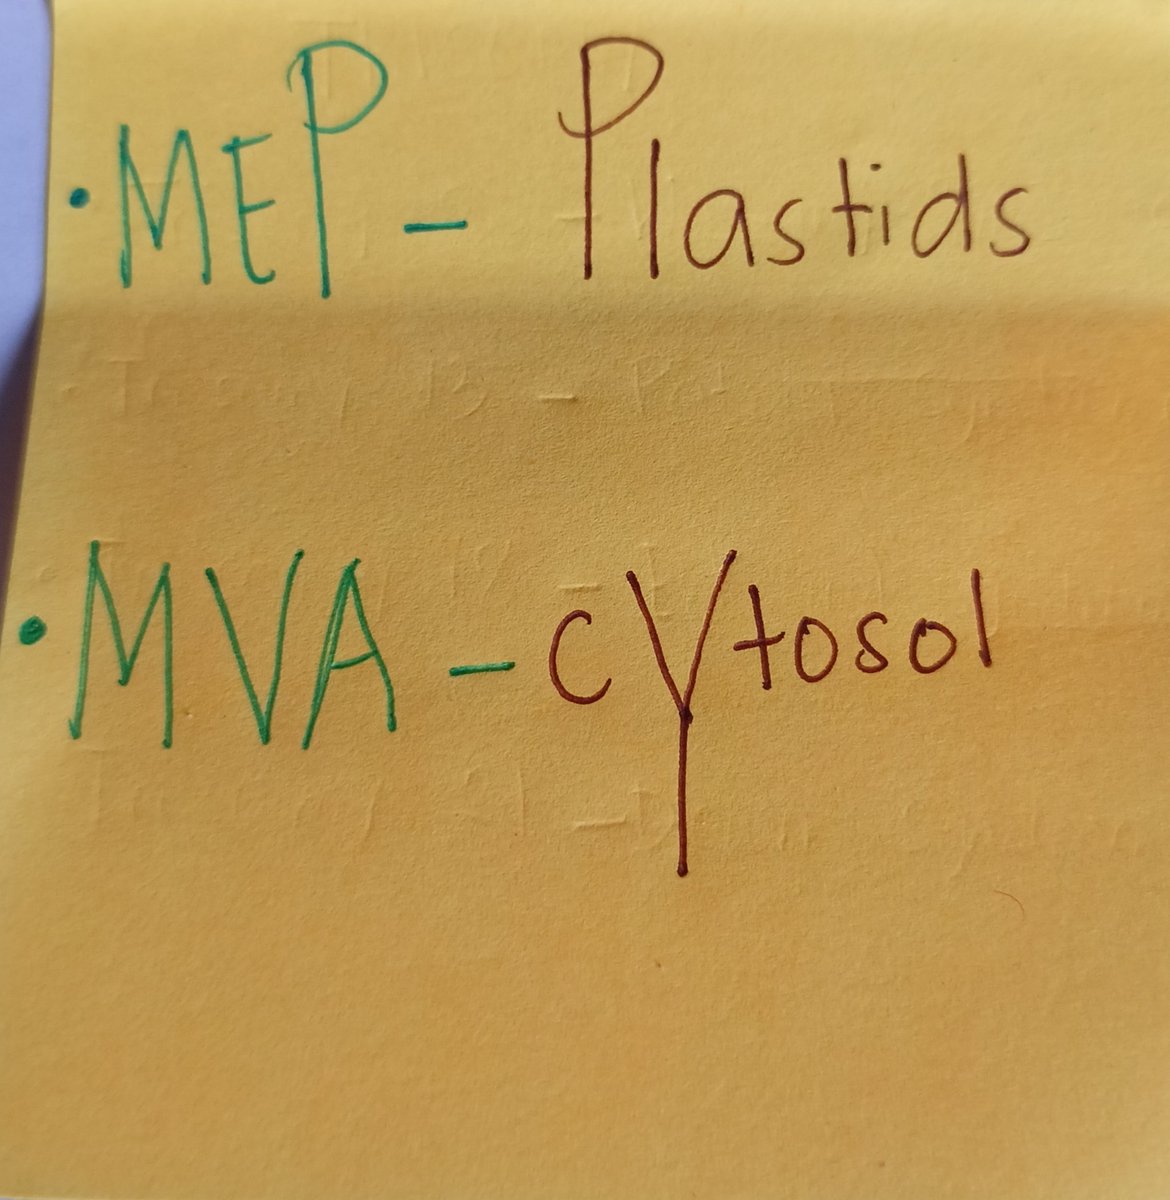 • MEP - Plastids
• MVA - cytosol